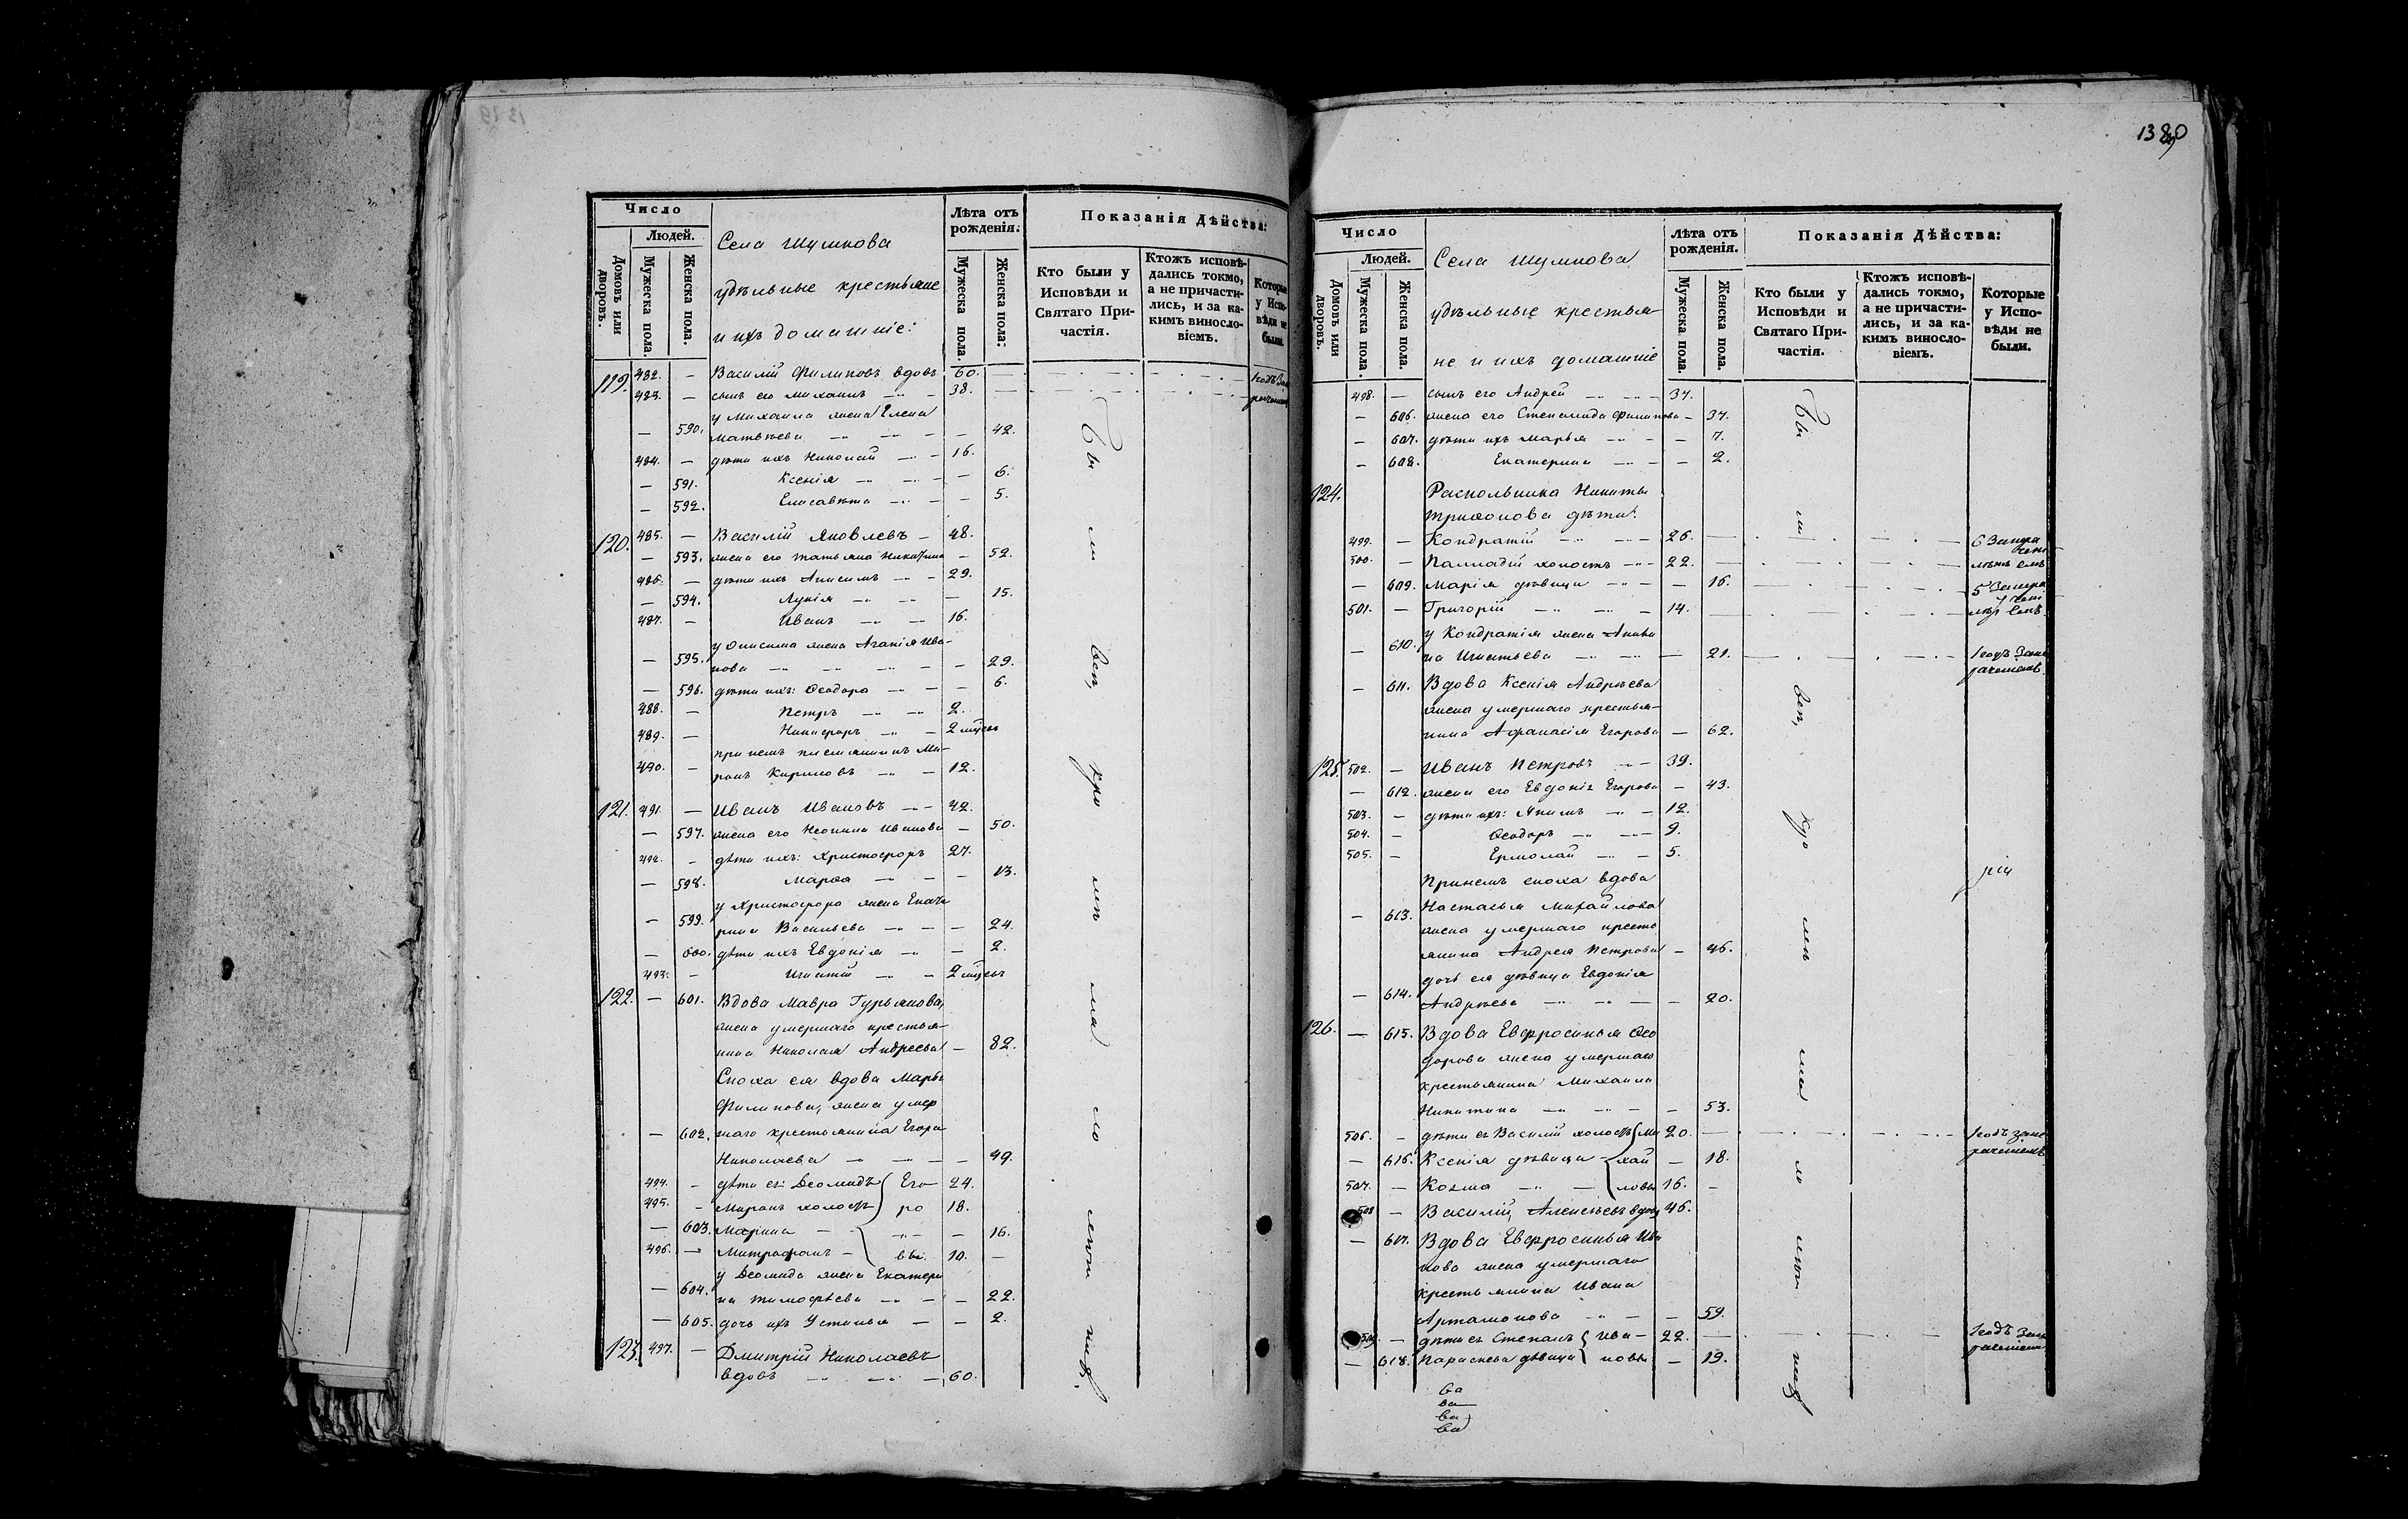 1380
Число
Людей.
Домовъ или дворовъ.
Мужеска пола.
Женска пола.
Села Шумкова
удѣльные крестьяне
и ихъ домашніе:
Лѣта отъ рожденія:
Мужеска пола.
Женска пола:
Показанія Дѣйства:
Кто были у Исповѣди и Святаго Причастія.
Ктожъ исповѣдались токмо, а не причастились, и за какимъ винословіемъ.
Которые у Исповѣди не были.
119. 482. — Василій Филиповъ вдовъ 60. —
483. — сынъ его Михаилъ — 38. —
у Михаила жена Елена
— 590. Матвѣева — — 42.
484. — дѣти ихъ Николай — 16.
— 591. Ксенія — — 6.
— 592. Елисавета — — 5.
120. 485. — Василій Яковлевъ — 48.
— 593. жена его Татьяна Никитина — 52.
486. — дѣти ихъ Анисимъ — 29.
— 594. Лукія — — 15.
487. — Иванъ — 16.
у Онисима жена Агапія Ива-
— 595. нова — — 29.
— 596. дѣти ихъ: Ѳеодора — — 6.
488. — Петръ — 2.
489. — Никифоръ — 2 мѣсяц
при немъ племянникъ Ми-
490. — ронъ Кириловъ — 12.
121. 491. — Иванъ Ивановъ — 42.
— 597. жена его Неонила Иванова — 50.
492. — дѣти ихъ: Христофоръ 27.
— 598. Марѳа — — 13.
у Христофора жена Екате
— 599. рина Васильева — — 24.
— 600. дѣти ихъ Евдокія — — 2.
493. — Игнатій — 2 мѣсяц
122. — 601. Вдова Мавра Гурьянова,
жена умершаго крестья-
нина Николая Андреева — 82.
Сноха ея вдова Марья
Филипова, жена умер
— 602. шаго крестьянина Егора
Николаева — — 49.
494. — дѣти ея: Деомидъ Его 24.
495. — Миронъ холостъ ро 18.
— 603. Марина — — 16.
496. — Митрофанъ — вы. 10. —
у Деомида жена Екатери
— 604. на Тимофѣева — — 22.
— 605. дочь ихъ Устинья — — 2.
123. 497. — Дмитрій Николаевъ
вдовъ — 60.
Число
Людей.
Домовъ или дворовъ.
Мужеска пола.
Женска пола.
Села Шумкова
удѣльные крестья-
не и ихъ домашніе
Лѣта отъ рожденія.
Мужеска пола.
Женска пола.
Показанія Дѣйства:
Кто были у Исповѣди и Святаго Причастія.
Ктожъ исповѣдались токмо, а не причастились, и за какимъ винословіемъ.
Которые у Исповѣди не были.
498. — сынъ его Андрей — 37.
— 606. жена его Степанида Филипова — 37.
— 607. дѣти ихъ Марья — — 7.
— 608. Екатерина — — 2.
124. Раскольника Никиты
Трифонова дѣти:
499. — Кондратій — 26. —
500. — Палладій холостъ — 22. —
— 609. Марія дѣвица — — 16.
501. — Григорій — 14. —
у Кондратія жена Анна
— 610. Игнатьева — — 21.
— 611. Вдова Ксенія Андреева
жена умершаго крестья-
нина Афанасія Егорова — 62.
125. 502. — Иванъ Петровъ — 39.
— 612. жена его Евдокія Егорова — 43.
503. — дѣти ихъ: Якимъ — 12.
504. — Ѳеодоръ — 9.
505. — Ермолай — 5.
При немъ сноха вдова
Настасья Михайлова
— 613. жена умершаго кресть
янина Андрея Петрова — 46.
дочь ея дѣвица Евдокія
— 614. Андреева — — 20.
126. — 615. Вдова Евфросинья Ѳео
дорова жена умершаго
крестьянина Михаила
Никитина — — 53.
506. — дѣти ея Василій холостъ Ми 20. —
— 616. Ксенія дѣвица хай — 18.
507. — Козма — ловы 16. —
508 — Василій Алексѣевъ вдовъ 46.
— 617. Вдова Евфросинья Ива
нова жена умершаго
крестьянина Ивана
Артамонова — — 59.
509. — дѣти ея Степанъ Ива — 22. —
— 618. Параскева дѣвица новы — 19.
ва
ва
ва
ва